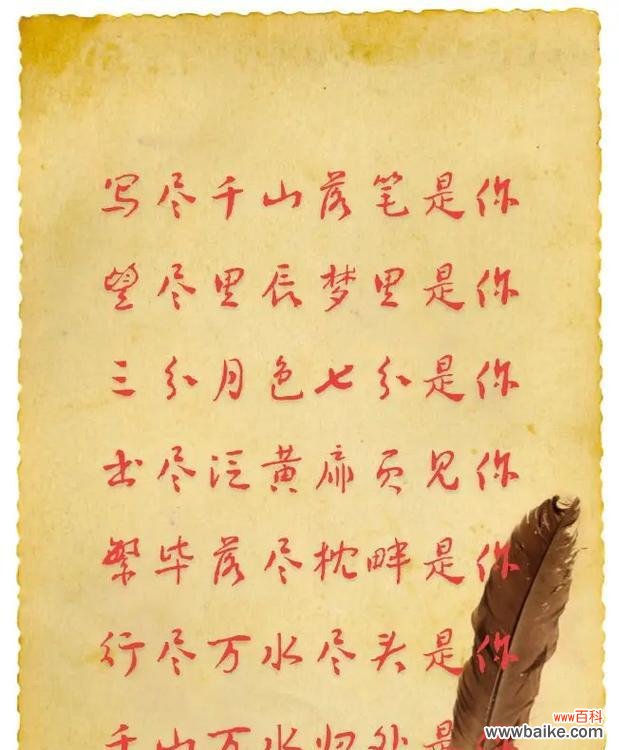 写尽千山落笔是你
望尽里辰梦里是你
三分月色七分是你
出尽泛黄扉页见你
繁毕落尽枕畔是你
行尽万水尽头是你
千山万水归处是
www百科
www.baike.com